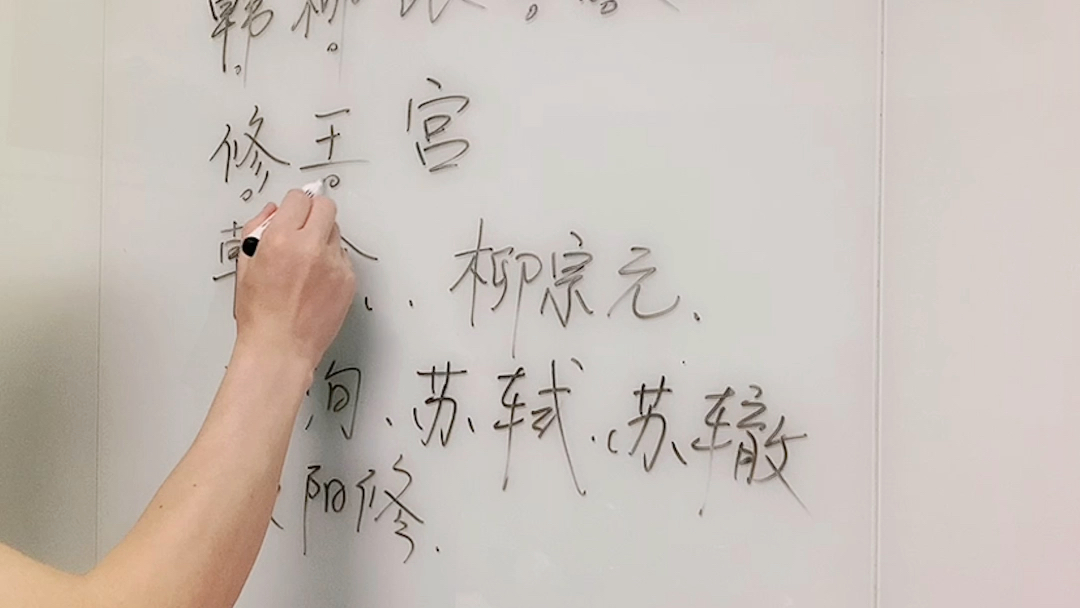 韩柳
修王宫
柳宗元.
洵、苏轼.苏辙
阳修.